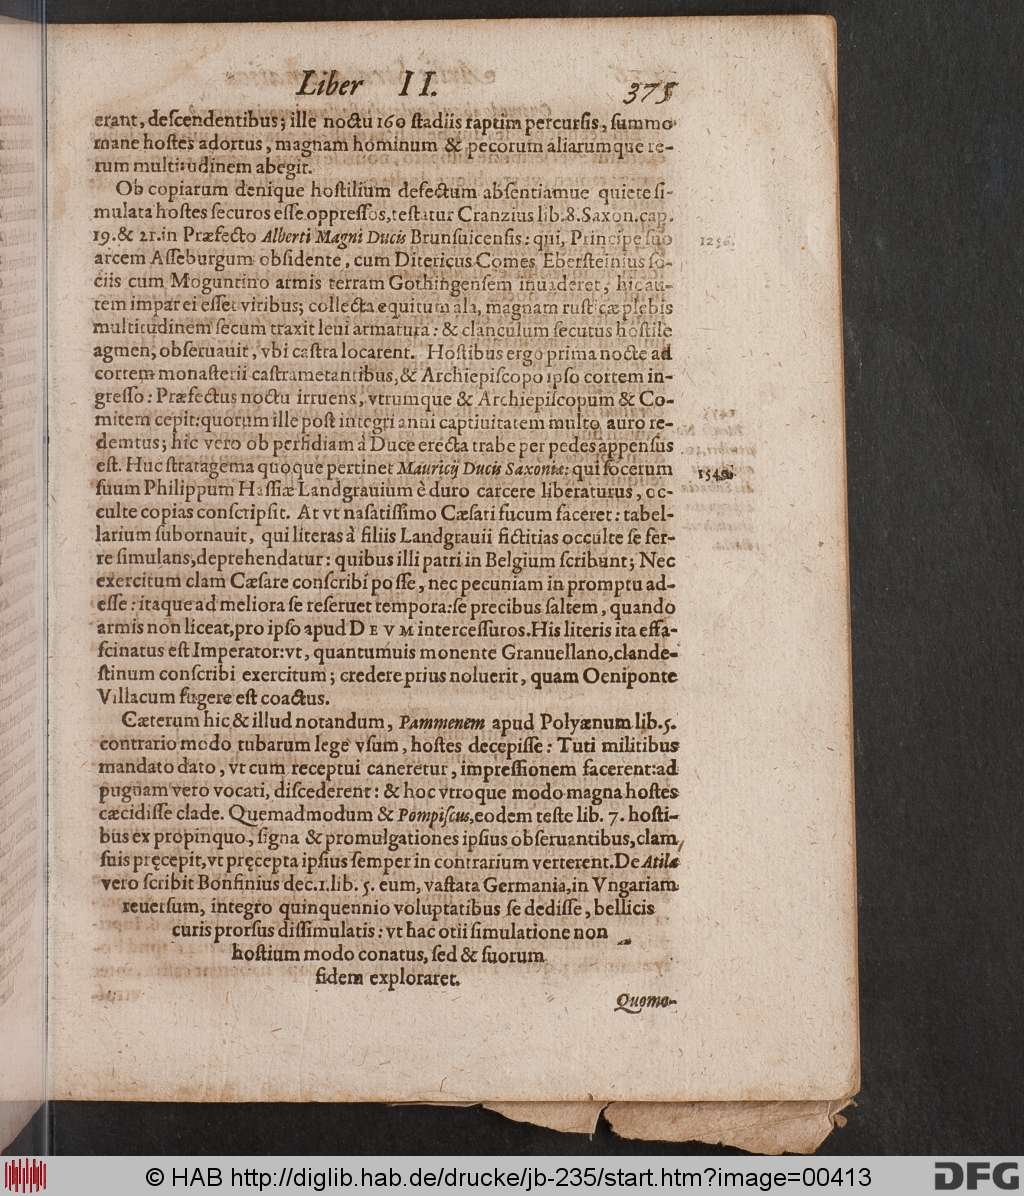 Liber II. 375
erant, deſcendentibus; ille noctu 160 ſtadiis raptim percurſis, ſummo
mane hoſtes adortus, magnam hominum & pecorum aliarumque re-
rum multitudinem abegit.
Ob copiarum denique hoſtilium defectum abſentiamue quiete ſi-
mulata hoſtes ſecuros eſſe oppreſſos, teſtatur Cranzius lib. 8. Saxon. cap.
19. & 21. in Præfecto Alberti Magni Ducis Brunſuicenſis: qui, Principe ſuo
1256.
arcem Aſſeburgum obſidente, cum Ditericus Comes Eberſteinius ſo-
ciis cum Moguntino armis terram Gothingenſem inuaderet, hic au-
tem impar ei eſſet viribus; collecta equitum ala, magnam ruſticæ plebis
multitudinem ſecum traxit leui armatura: & clanculum ſecutus hoſtile
agmen, obſeruauit, vbi caſtra locarent. Hoſtibus ergo prima nocte ad
cortem monaſterii caſtrametantibus, & Archiepiſcopo ipſo cortem in-
greſſo: Præfectus noctu irruens, vtrumque & Archiepiſcopum & Co-
mitem cepit: quorum ille poſt integri anni captiuitatem multo auro re-
demtus; hic vero ob perfidiam à Duce erecta trabe per pedes appenſus
eſt. Huc ſtratagema quoque pertinet Mauricij Ducis Saxoniæ: qui ſocerum
ſuum Philippum Haſſiæ Landgrauium è duro carcere liberaturus, oc-
culte copias conſcripſit. At vt naſatiſſimo Cæſari fucum faceret: tabel-
larium ſubornauit, qui literas à filiis Landgrauii fictitias occulte ſe fer-
re ſimulans, deprehendatur: quibus illi patri in Belgium ſcribunt; Nec
exercitum clam Cæſare conſcribi poſſe, nec pecuniam in promptu ad-
eſſe: itaque ad meliora ſe reſeruet tempora: ſe precibus ſaltem, quando
armis non liceat, pro ipſo apud DEVM interceſſuros. His literis ita effa-
ſcinatus eſt Imperator: vt, quantumuis monente Granuellano, clande-
ſtinum conſcribi exercitum; credere prius noluerit, quam Oeniponte
Villacum fugere eſt coactus.
Cæterum hic & illud notandum, Pammenem apud Polyænum lib. 5.
contrario modo tubarum lege vſum, hoſtes decepiſſe: Tuti militibus
mandato dato, vt cum receptui caneretur, impreſſionem facerent: ad
pugnam vero vocati, diſcederent: & hoc vtroque modo magna hoſtes
cæcidiſſe clade. Quemadmodum & Pompiſcus, eodem teſte lib. 7. hoſti-
bus ex propinquo, ſigna & promulgationes ipſius obſeruantibus, clam,
ſuis pręcepit, vt pręcepta ipſius ſemper in contrarium verterent. De Atila
vero ſcribit Bonfinius dec. 1. lib. 5. eum, vaſtata Germania, in Vngariam
reuerſum, integro quinquennio voluptatibus ſe dediſſe, bellicis
curis prorſus diſſimulatis: vt hac otii ſimulatione non
hoſtium modo conatus, ſed & ſuorum
fidem exploraret.
Quomo-
© HAB http://diglib.hab.de/drucke/jb-235/start.htm?image=00413
DFG